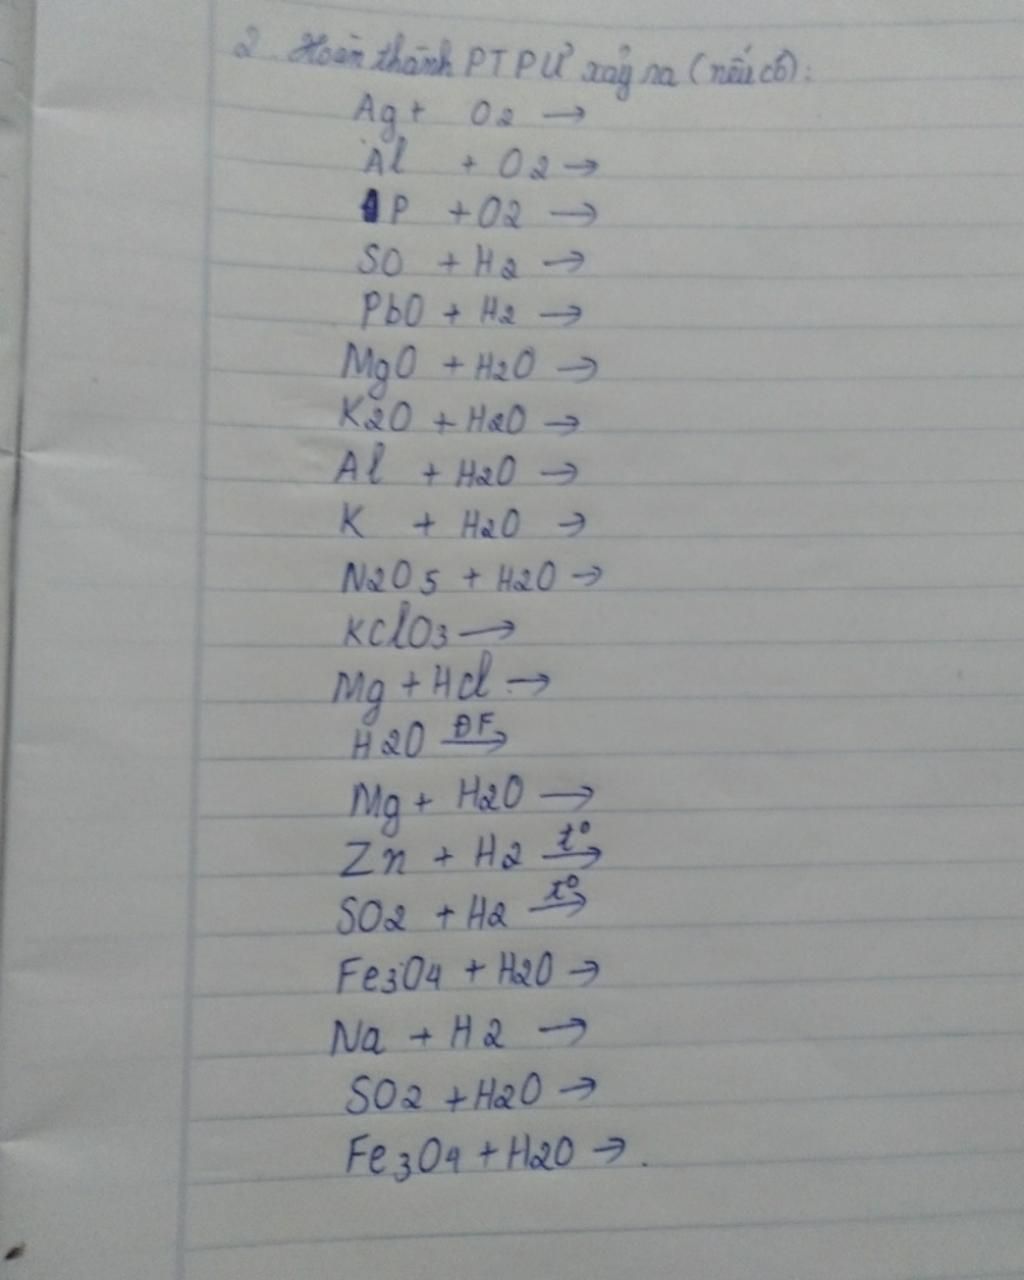 2 Hoàn thành PTPƯ xảy ra (nếu có):
Ag + O2 →
Al + O2 →
P + O2 →
SO + H2 →
PbO + H2 →
MgO + H2O →
K2O + H2O →
Al + H2O →
K + H2O →
N2O5 + H2O →
KClO3 →
Mg + HCl →
H2O ĐF→
Mg + H2O →
Zn + H2 t°→
SO2 + H2 t°→
Fe3O4 + H2O →
Na + H2 →
SO2 + H2O →
Fe3O4 + H2O → .